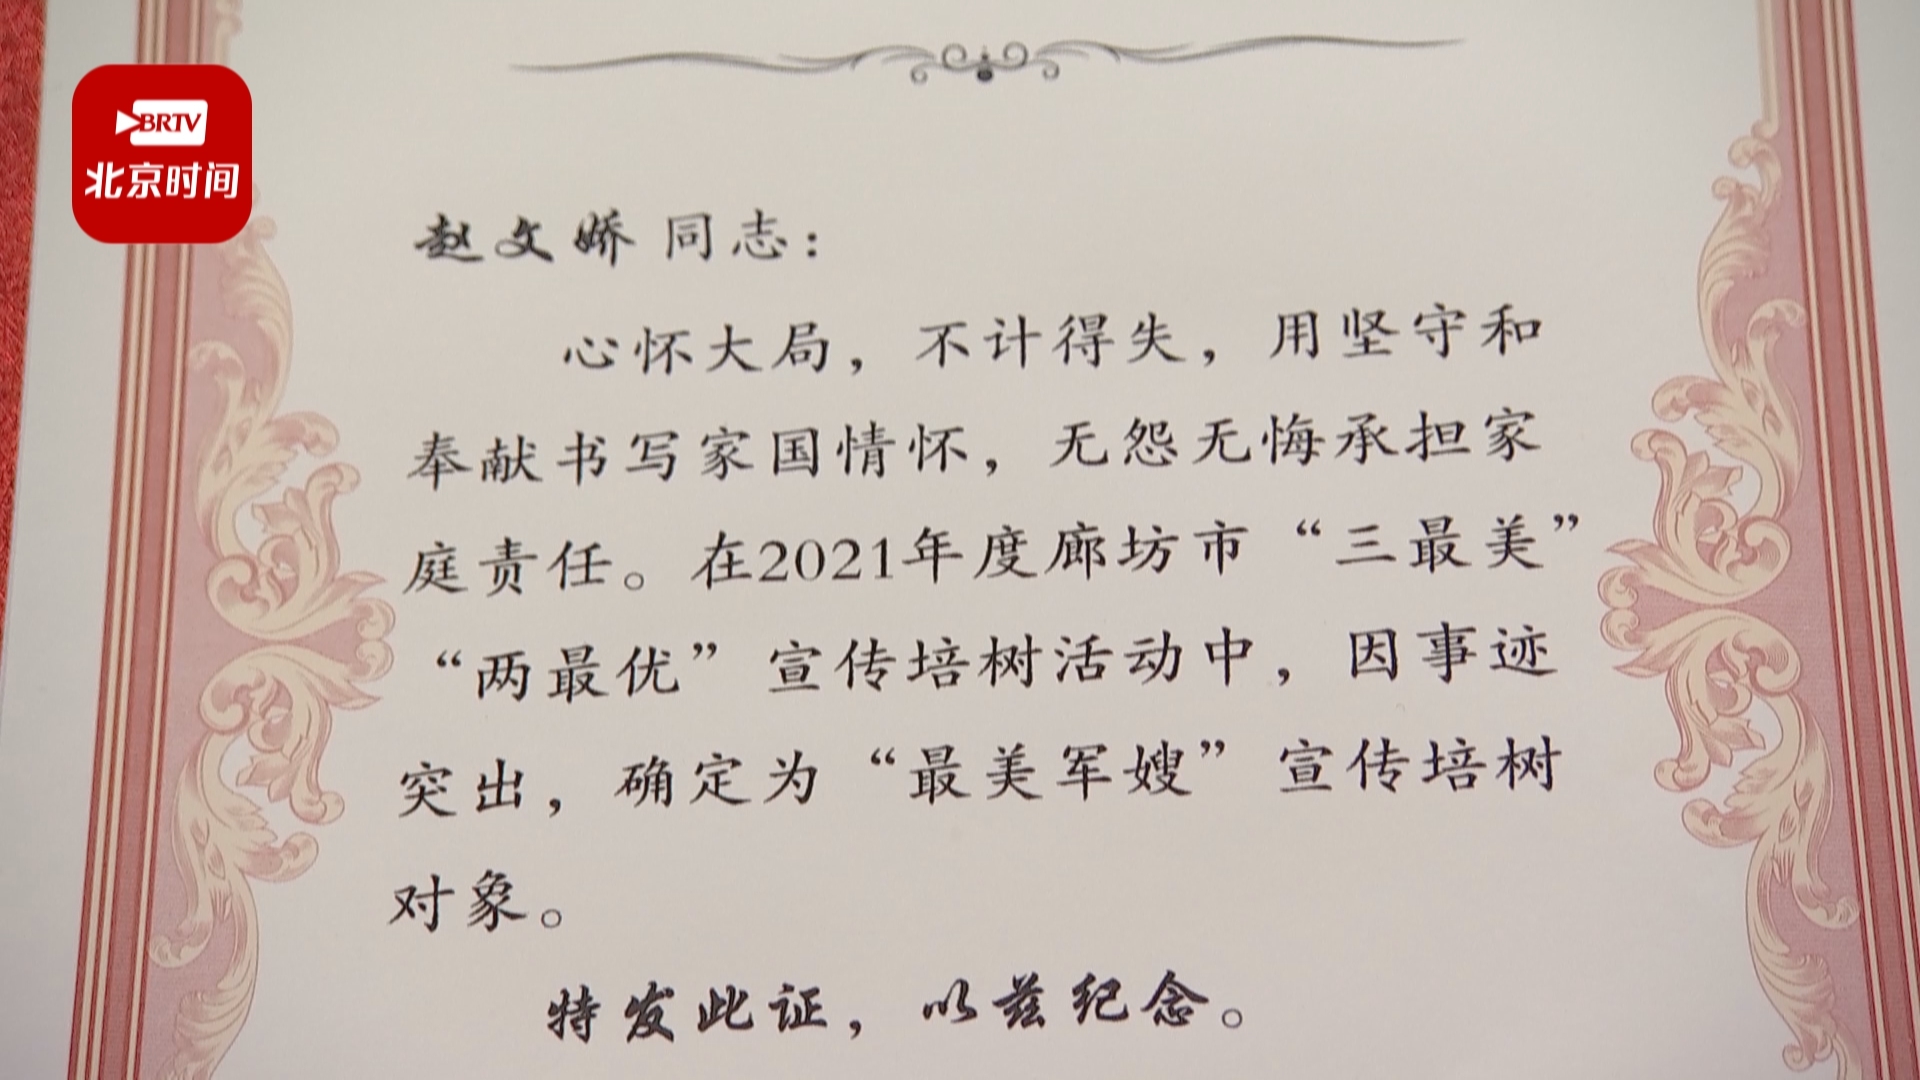 BRTV
北京时间
赵文娇 同志：
心怀大局，不计得失，用坚守和
奉献书写家国情怀，无怨无悔承担家
庭责任。在2021年度廊坊市“三最美”
“两最优”宣传培树活动中，因事迹
突出，确定为“最美军嫂”宣传培树
对象。
特发此证，以兹纪念。